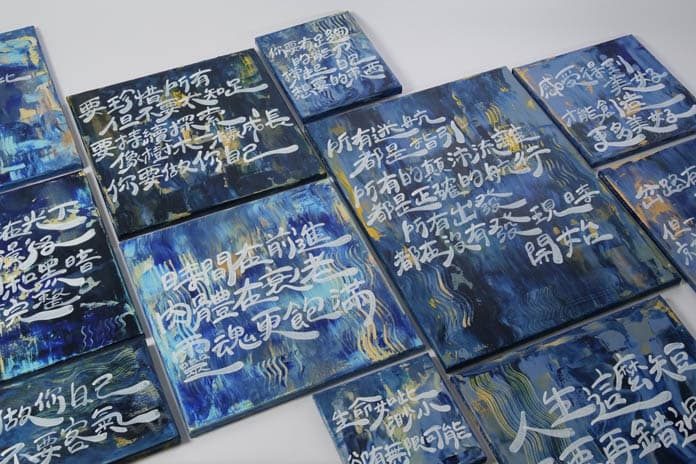 要珍惜所有
但不要太知足
要持續探索
像樹木一樣成長
你要做你自己
你要有足夠
自己
想要的東西
感受得到美好
才能創造
更多美好
所有迷航
都是指引
所有的顛沛流離
都是正確的航行
所有出發
都在沒有發現時
開始
時間在前進
肉體在衰老
靈魂更飽滿
黑暗
完整
岔路
但
做你自己
不要客氣
生命如此
渺小
卻有無限可能
人生這麼短
再錯過